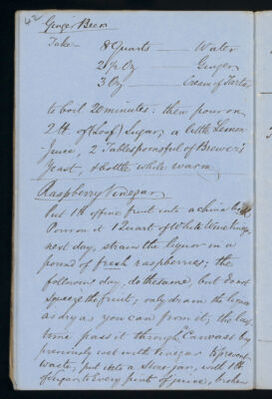 42
Ginger Beer
Take 8 Quarts — Water
2 ½ Oz — Ginger
3 Oz — Cream of Tartar
to boil 20 minutes: then pour on
2 lb of Loaf Sugar, a little Lemon
Juice, 2 Tablespoonsful of Brewer's
Yeast, & bottle, while warm
Raspberry Vinegar
Put 1 lb of fine fruit into a china
Pour on it 1 Quart of White Wine Vinegar
next day, strain the liquor on a
pound of fresh raspberries; the
following day, do the same, but do not
squeeze the fruit; only drain the liquor
as dry as you can from it; the last
time pass it through Canvass by
previously wet with vinegar to prevent
waste, put into a Stone jar, with 1 lb
of sugar to every pint of juice, broken